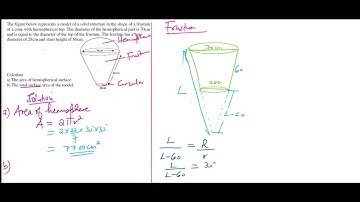 The figure below represents a model of a solid structure in the shape of a frustum
of a cone with hemispherical top. The diameter of the hemispherical part is 70cm
and is equal to the diameter of the top of the frustum. The frustum has a base
diameter of 28cm and slant height of 60cm.
Hemisphere
Frust
Circular
Calculate
a) The area of hemispherical surface.
b) The total surface area of the model.
Solution
a) Area of hemisphere
A = 2πr²
= 2×22×35×35
7
= 7700cm²
b)
Frustum
70cm
60
L
L-60
L = R
L-60 r
L = 35
L-60